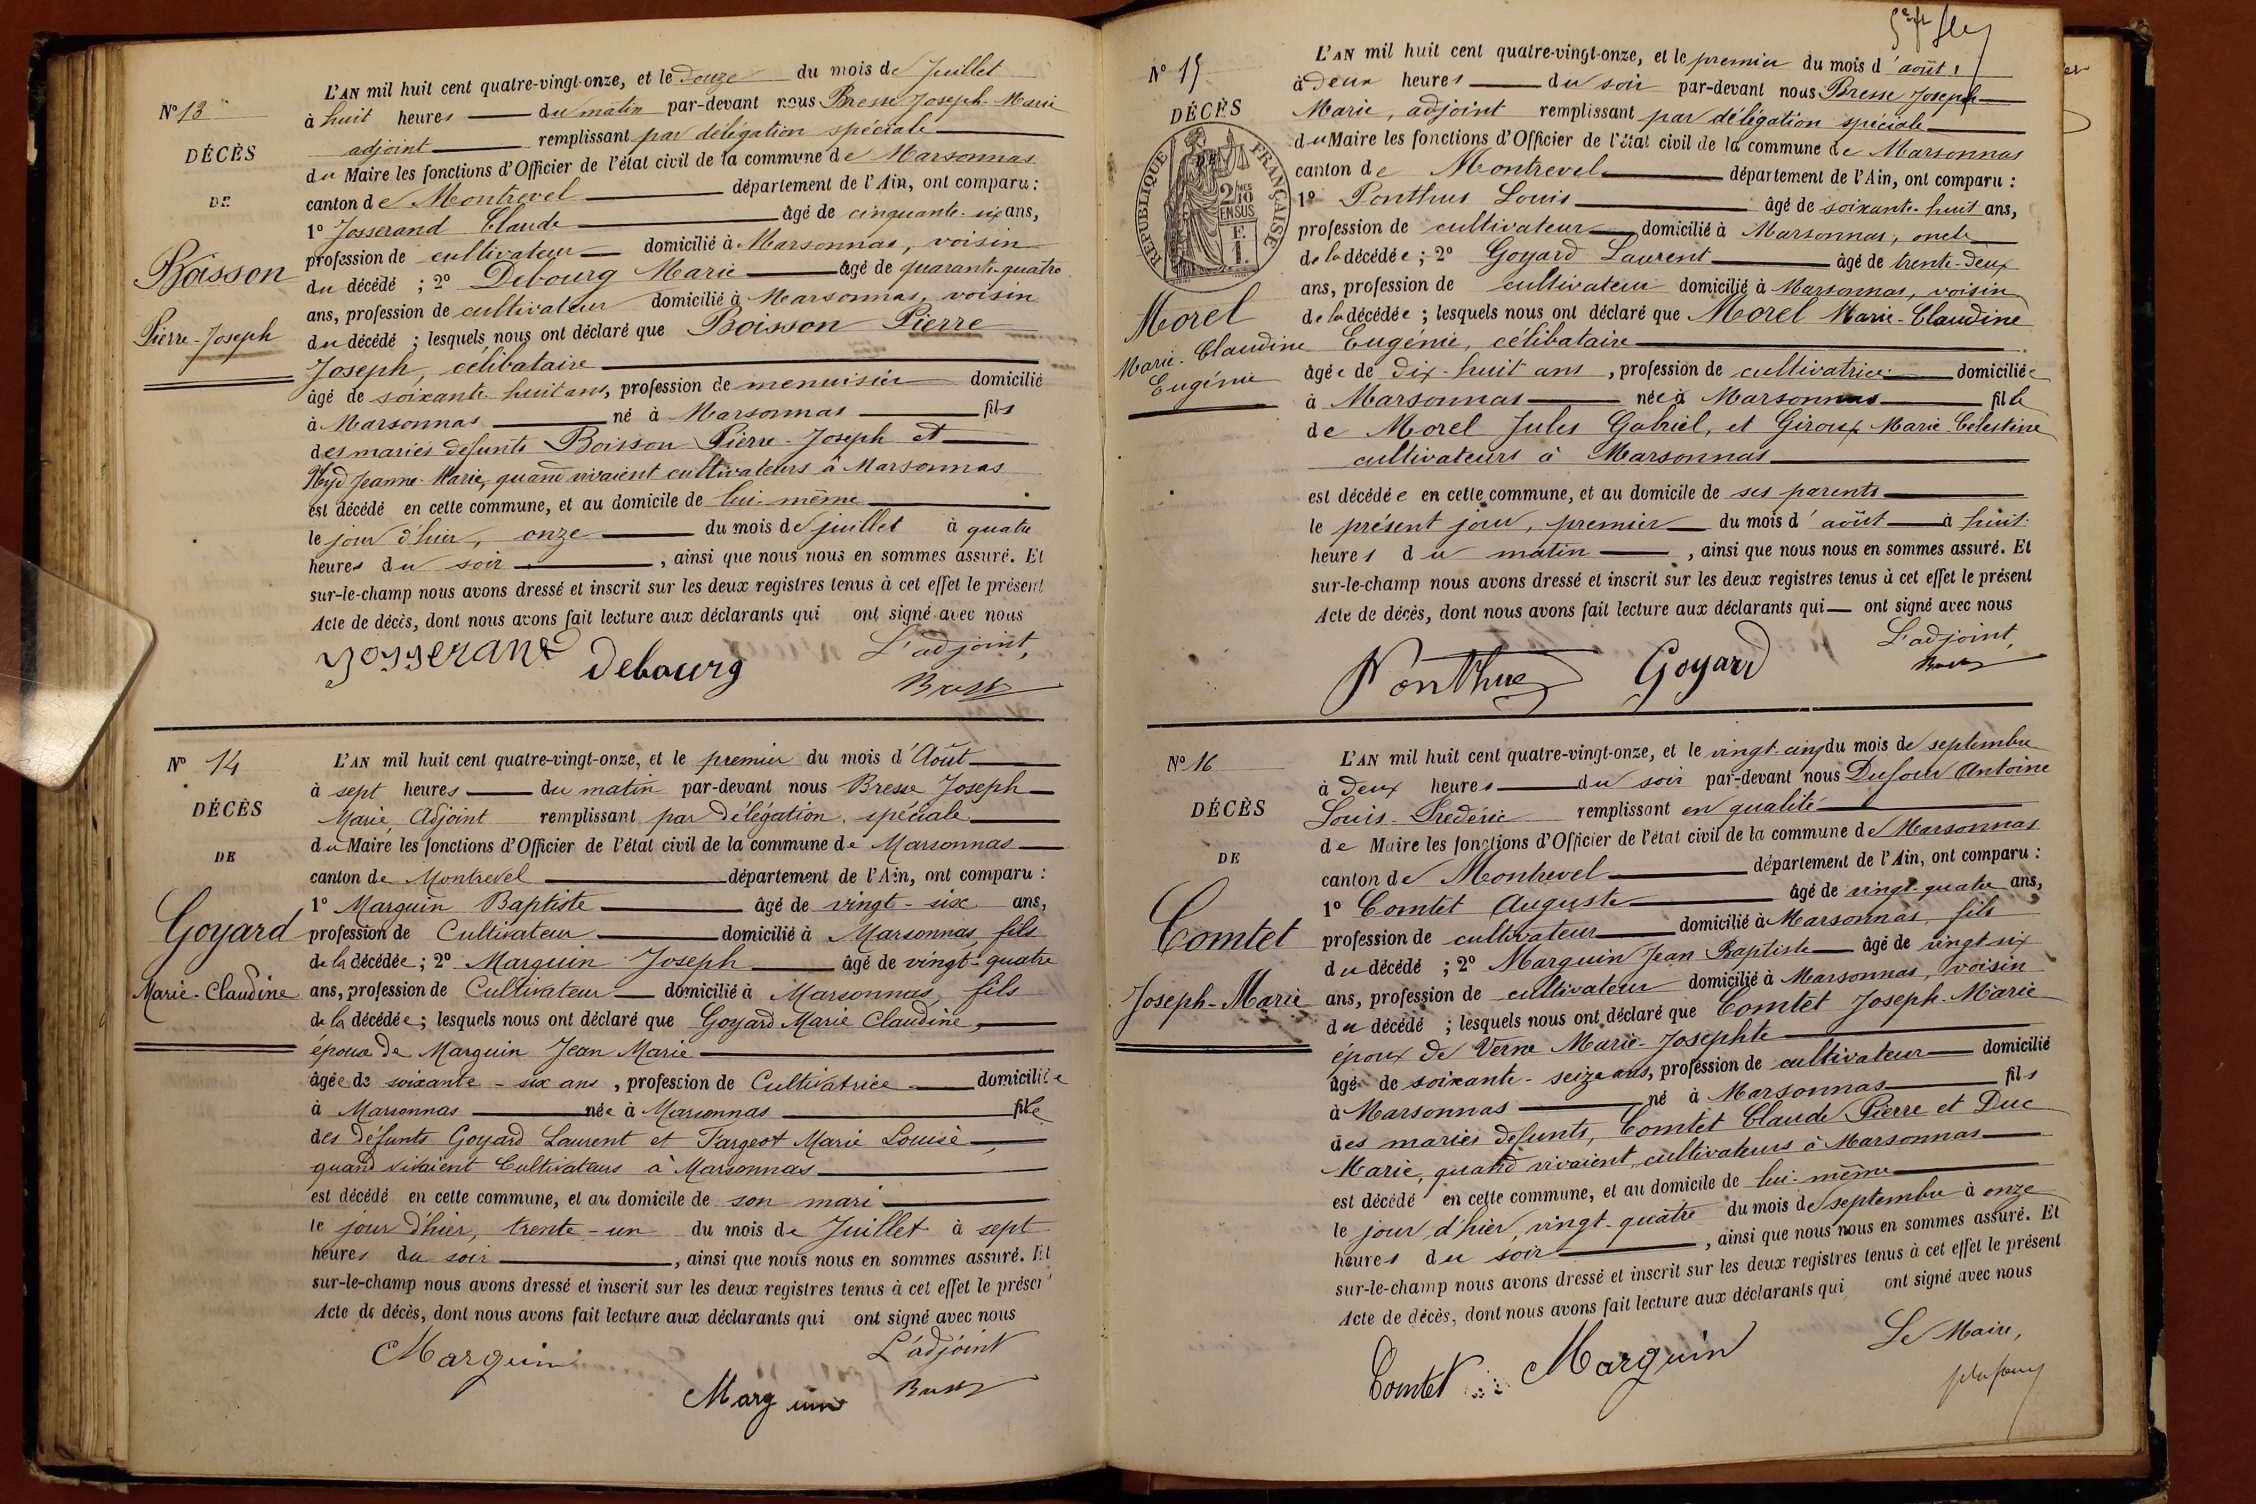 N° 13
DÉCÈS
DE
Boisson
Pierre-Joseph
L'AN mil huit cent quatre-vingt-onze, et le douze du mois de Juillet
à huit heures du matin par-devant nous Bresse Joseph-Marie
adjoint remplissant par délégation spéciale
du Maire les fonctions d'Officier de l'état civil de la commune de Marsonnas
canton de Montrevel département de l'Ain, ont comparu :
1° Josserand Claude âgé de cinquante-six ans,
profession de cultivateur domicilié à Marsonnas, voisin
du décédé ; 2° Debourg Marie âgé de quarante-quatre
ans, profession de cultivateur domicilié à Marsonnas, voisin
du décédé ; lesquels nous ont déclaré que Boisson Pierre
Joseph, célibataire
âgé de soixante-huit ans, profession de menuisier domicilié
à Marsonnas né à Marsonnas fils
des mariés defunts Boisson Pierre-Joseph et
Jeanne-Marie, quand vivaient cultivateurs à Marsonnas
est décédé en cette commune, et au domicile de lui-même
le jour d'hier, onze du mois de juillet à quatre
heures du soir , ainsi que nous nous en sommes assuré. Et
sur-le-champ nous avons dressé et inscrit sur les deux registres tenus à cet effet le présent
Acte de décès, dont nous avons fait lecture aux déclarants qui ont signé avec nous
L'adjoint,
Josserand Debourg Bresse
N° 14
DÉCÈS
DE
Goyard
Marie-Claudine
L'AN mil huit cent quatre-vingt-onze, et le premier du mois d'Août
à sept heures du matin par-devant nous Bresse Joseph
Marie, Adjoint remplissant par délégation spéciale
du Maire les fonctions d'Officier de l'état civil de la commune de Marsonnas
canton de Montrevel département de l'Ain, ont comparu :
1° Marguin Baptiste âgé de vingt-six ans,
profession de Cultivateur domicilié à Marsonnas, fils
de la décédée ; 2° Marguin Joseph âgé de vingt-quatre
ans, profession de Cultivateur domicilié à Marsonnas, fils
de la décédée ; lesquels nous ont déclaré que Goyard Marie Claudine,
épouse de Marguin Jean Marie
âgée de soixante-six ans, profession de Cultivatrice domiciliée
à Marsonnas née à Marsonnas fille
des défunts Goyard Laurent et Fargeot Marie Louise,
quand vivaient Cultivateurs à Marsonnas
est décédé en cette commune, et au domicile de son mari
le jour d'hier, trente-un du mois de Juillet à sept
heures du soir , ainsi que nous nous en sommes assuré. Et
sur-le-champ nous avons dressé et inscrit sur les deux registres tenus à cet effet le présent
Acte de décès, dont nous avons fait lecture aux déclarants qui ont signé avec nous
L'adjoint
Marguin Marguin Bresse
N° 15
DÉCÈS
RÉPUBLIQUE FRANÇAISE
2/10 EN SUS
Morel
Marie-Claudine
Eugénie
L'AN mil huit cent quatre-vingt-onze, et le premier du mois d'août,
à deux heures du soir par-devant nous Bresse Joseph
Marie, adjoint remplissant par délégation spéciale
du Maire les fonctions d'Officier de l'état civil de la commune de Marsonnas
canton de Montrevel département de l'Ain, ont comparu :
1° Ponthus Louis âgé de soixante-huit ans,
profession de cultivateur domicilié à Marsonnas, oncle
de la décédée ; 2° Goyard Laurent âgé de trente-deux
ans, profession de cultivateur domicilié à Marsonnas, voisin
de la décédée ; lesquels nous ont déclaré que Morel Marie-Claudine
Eugénie, célibataire
âgée de dix-huit ans, profession de cultivatrice domiciliée
à Marsonnas née à Marsonnas fille
de Morel Jules Gabriel, et Giroux Marie-Célestine
cultivateurs à Marsonnas
est décédée en cette commune, et au domicile de ses parents
le présent jour, premier du mois d'août à huit
heures du matin , ainsi que nous nous en sommes assuré. Et
sur-le-champ nous avons dressé et inscrit sur les deux registres tenus à cet effet le présent
Acte de décès, dont nous avons fait lecture aux déclarants qui ont signé avec nous
L'adjoint,
Ponthus Goyard Bresse
N° 16
DÉCÈS
DE
Comtet
Joseph-Marie
L'AN mil huit cent quatre-vingt-onze, et le vingt-cinq du mois de septembre
à deux heures du soir par-devant nous Dufour Antoine
Louis-Frédéric remplissant en qualité
de Maire les fonctions d'Officier de l'état civil de la commune de Marsonnas
canton de Montrevel département de l'Ain, ont comparu :
1° Comtet Auguste âgé de vingt-quatre ans,
profession de cultivateur domicilié à Marsonnas, fils
du décédé ; 2° Marguin Jean Baptiste âgé de vingt-six
ans, profession de cultivateur domicilié à Marsonnas, voisin
du décédé ; lesquels nous ont déclaré que Comtet Joseph-Marie
époux de Verne Marie-Josephte
âgé de soixante-seize ans, profession de cultivateur domicilié
à Marsonnas né à Marsonnas fils
des mariés defunts, Comtet Claude Pierre et Duc
Marie, quand vivaient cultivateurs à Marsonnas
est décédé en cette commune, et au domicile de lui-même
le jour d'hier, vingt-quatre du mois de septembre à onze
heures du soir , ainsi que nous nous en sommes assuré. Et
sur-le-champ nous avons dressé et inscrit sur les deux registres tenus à cet effet le présent
Acte de décès, dont nous avons fait lecture aux déclarants qui ont signé avec nous
Le Maire,
Comtet Marguin